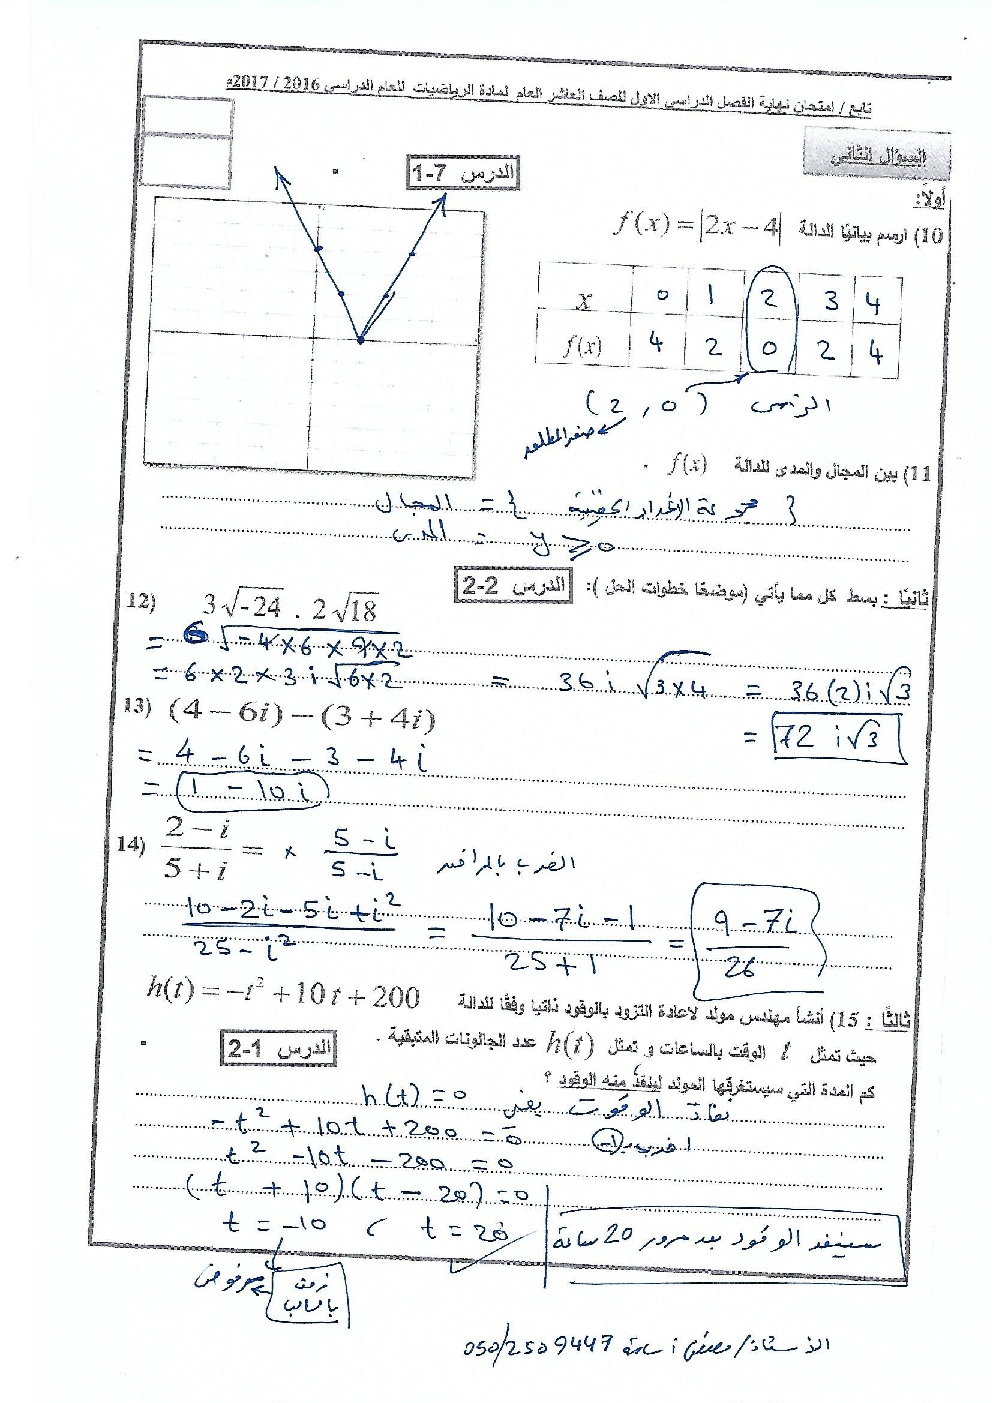 تابع / امتحان نهاية الفصل الدراسي الاول للصف العاشر العام لمادة الرياضيات للعام الدراسي 2016 / 2017م
السؤال الثاني
الدرس 7-1
أولاً:
10) ارسم بيانيًا الدالة f(x) = |2x − 4|
x 0 1 2 3 4
f(x) 4 2 0 2 4
الرأس (2, 0)
صفر المطلعه
11) بين المجال والمدى للدالة f(x) .
المجال = { مجموعة الاعداد الحقيقية }
المدى = y ≥ 0
ثانيًا : بسط كل مما يأتي (موضعًا خطوات الحل ): الدرس 2-2
12) 3√-24 . 2√18
= 6 √-4×6×9×2
= 6×2×3 i √6×2 = 36 i √3×4 = 36(2) i √3
= 72 i√3
13) (4 − 6i) − (3 + 4i)
= 4 − 6i − 3 − 4i
= 1 − 10 i
14) (2 − i)/(5 + i) = × (5 − i)/(5 − i) الضرب بالمرافق
(10 − 2i − 5i + i²)/(25 − i²) = (10 − 7i − 1)/(25 + 1) = (9 − 7i)/26
ثالثًا : 15) أنشأ مهندس مولد لاعادة التزود بالوقود ذاتيا وفقًا للدالة h(t) = −t² + 10t + 200
حيث تمثل t الوقت بالساعات و تمثل h(t) عدد الجالونات المتبقية .
الدرس 1-2
كم المدة التي سيستغرقها المولد لينفذ منه الوقود ؟
نفاذ الوقود يعني h(t) = 0
−t² + 10t + 200 = 0 اضرب بـ (−1)
t² − 10t − 200 = 0
(t + 10)(t − 20) = 0
t = −10 , t = 20
سينفد الوقود بعد مرور 20 ساعة
زمن بالسالب مرفوض
050/2509447